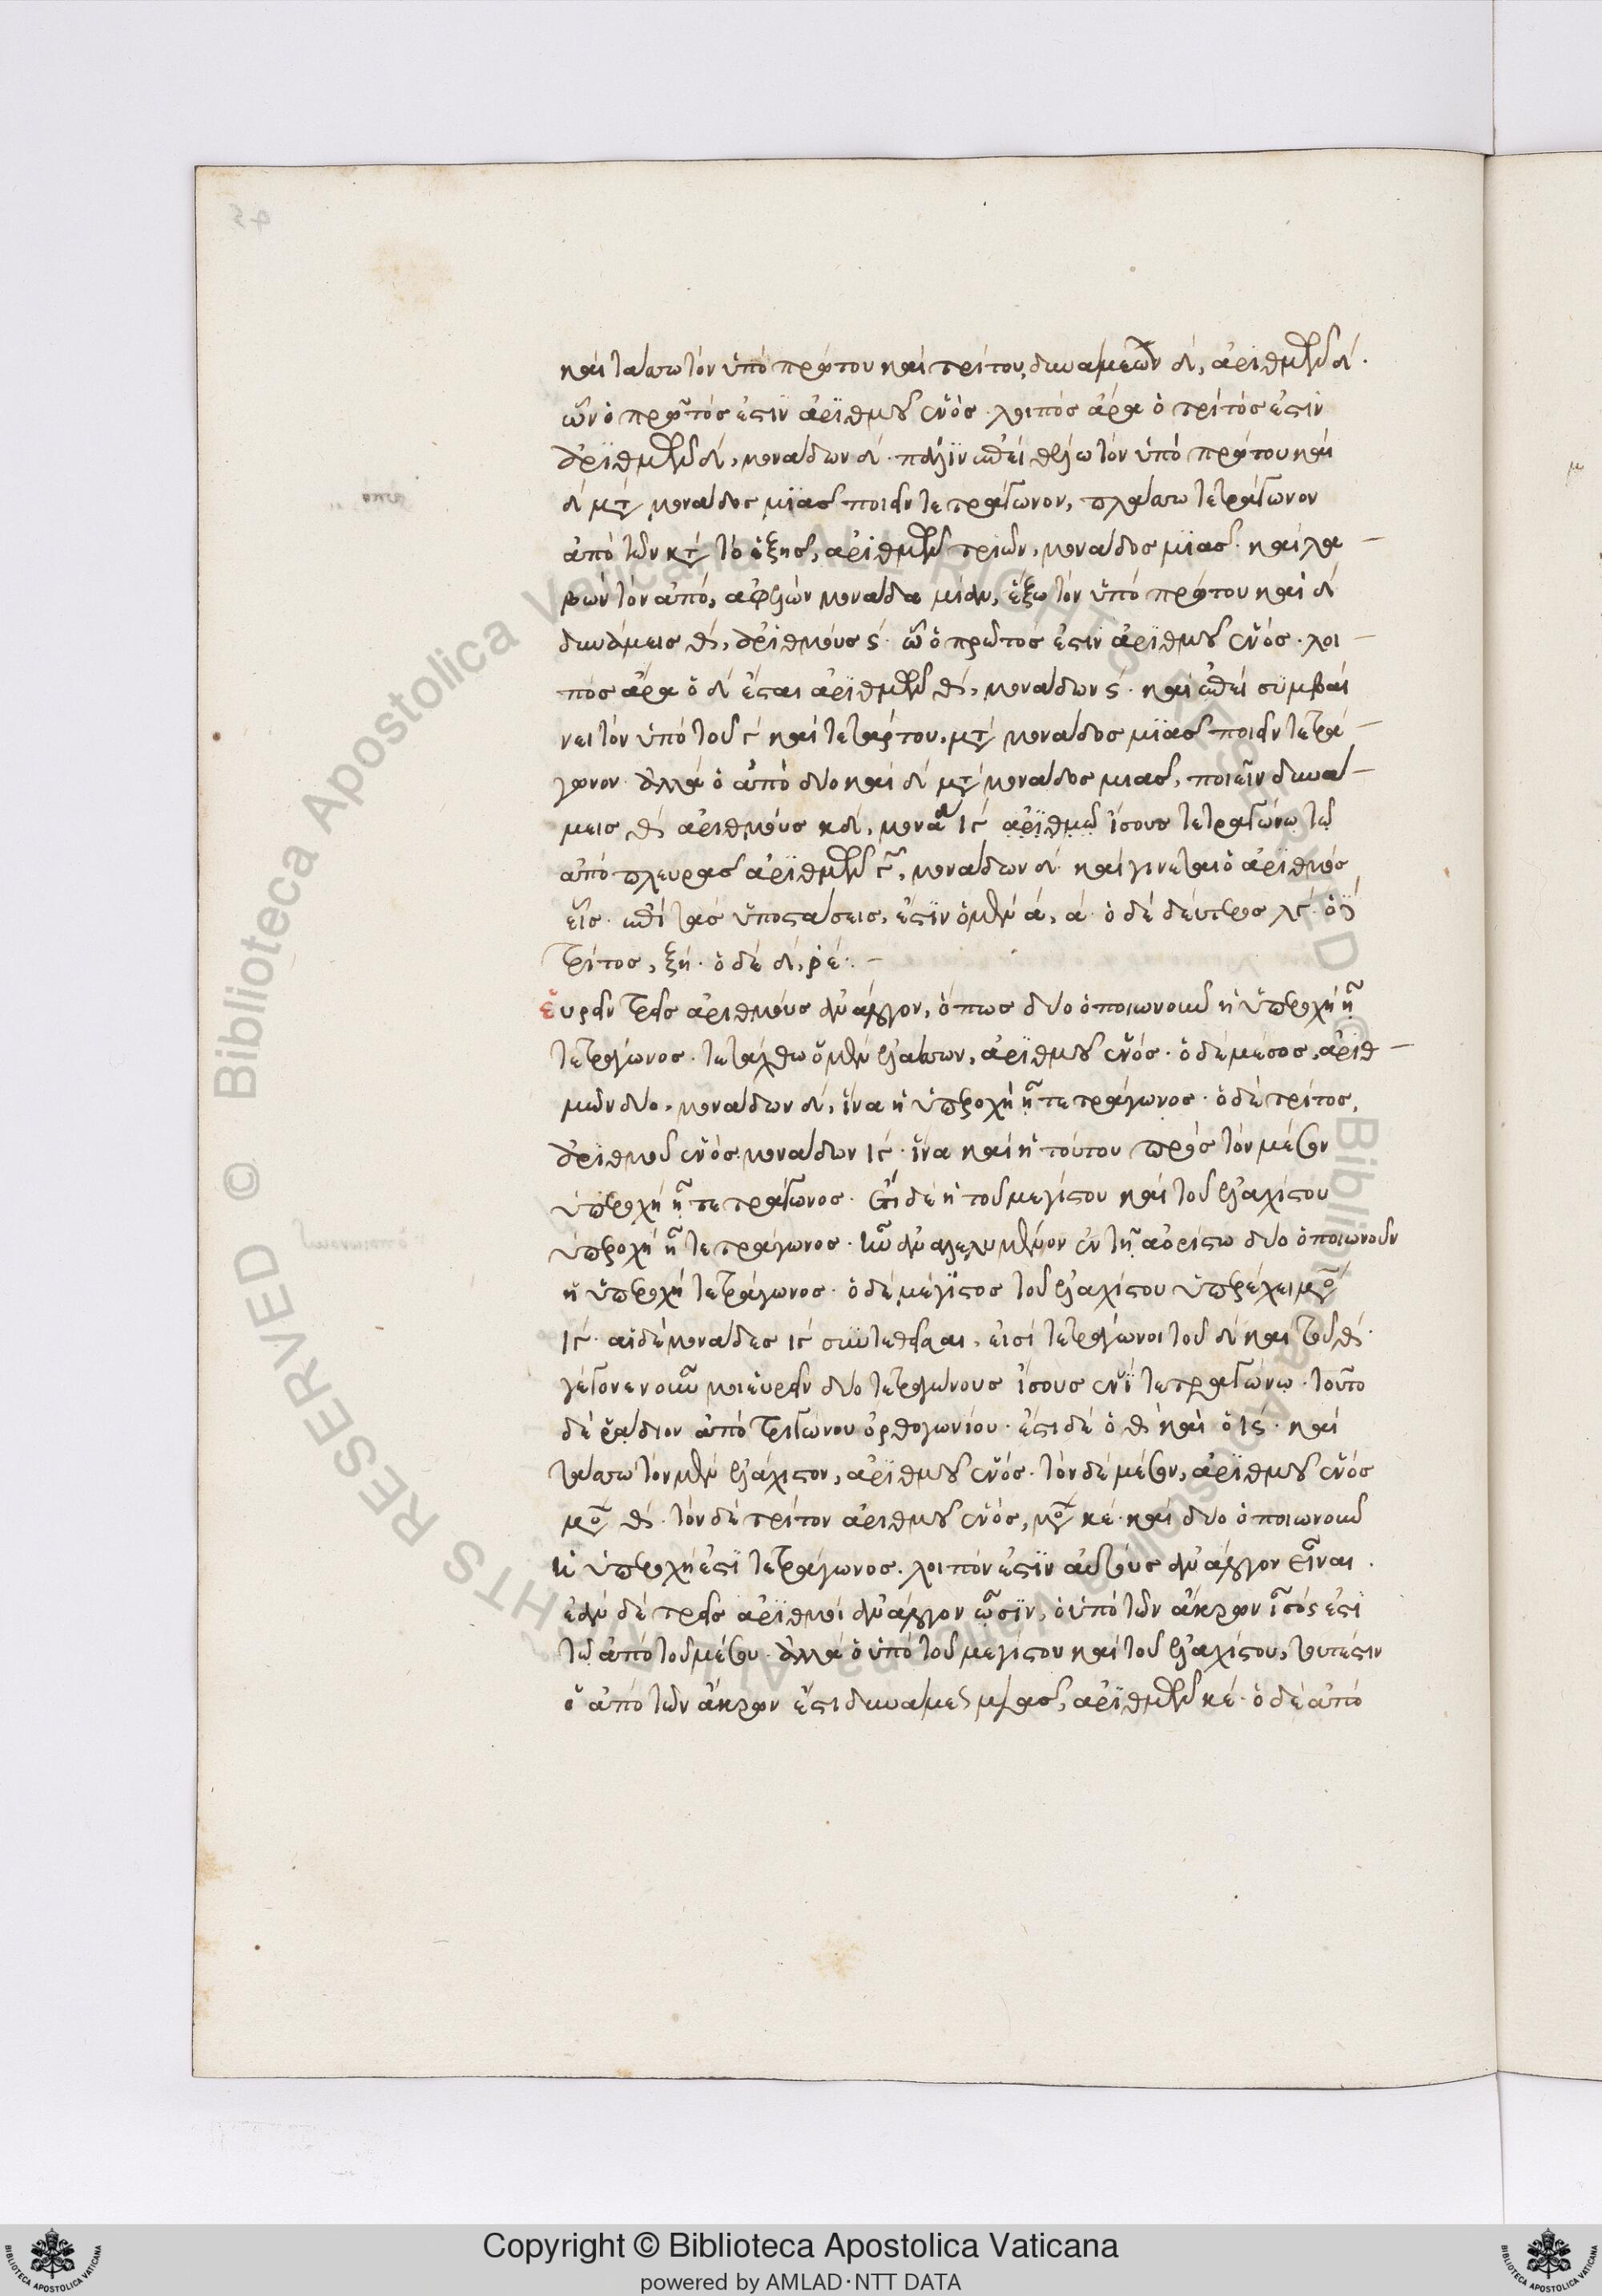 καὶ τάσσω τὸν ὑπὸ πρώτου καὶ τρίτου, δυνάμεων δ, ἀριθμῶν δ.
ὧν ὁ πρῶτός ἐστιν ἀριθμοῦ ἑνός. λοιπὸς ἄρα ὁ τρίτός ἐστιν
ἀριθμῶν δ, μονάδων δ. πάλιν ἐπεὶ θέλω τὸν ὑπὸ πρώτου καὶ
δ μετὰ μονάδος μιᾶς ποιεῖν τετράγωνον, πλάσσω τετράγωνον
ἀπὸ τῶν κατὰ τὸ ἑξῆς, ἀριθμῶν τριῶν, μονάδος μιᾶς. καὶ λα
βὼν τὸν ἀπὸ, ἀφελὼν μονάδα μίαν, ἕξω τὸν ὑπὸ πρώτου καὶ δ
δυνάμεις θ, ἀριθμοὺς ς. ὧν ὁ πρῶτός ἐστιν ἀριθμοῦ ἑνός. λοι
πὸς ἄρα ὁ δ ἔσται ἀριθμῶν θ, μονάδων ς. καὶ ἐπεὶ συμβαί
νει τὸν ὑπὸ τοῦ γ καὶ τετάρτου, μετὰ μονάδος μιᾶς ποιεῖν τετρά
γωνον. ἀλλὰ ὁ ἀπὸ δύο καὶ δ μετὰ μονάδος μιᾶς, ποιεῖν δυνά
μεις θ ἀριθμοὺς κδ, μονάδ ιγ ἀριθμῷ ἴσους τετραγώνῳ τῷ
ἀπὸ πλευρᾶς ἀριθμῶν ς, μονάδων δ. καὶ γίνεται ὁ ἀριθμὸς
εἷς. ἐπὶ τὰς ὑποστάσεις, ἔστιν ὁ μὲν α, α. ὁ δὲ δεύτερος λγ. ὁ
τρίτος, ξη. ὁ δὲ δ, ρε.
εὑρεῖν τρεῖς ἀριθμοὺς ἀνάλογον, ὅπως δύο ὁποιωνοῦν ἡ ὑπεροχὴ ᾖ
τετράγωνος. τετάχθω ὁ μὲν ἐλάσσων, ἀριθμοῦ ἑνός. ὁ δὲ μέσος, ἀριθ
μῶν δύο, μονάδων δ, ἵνα ἡ ὑπεροχὴ ᾖ τετράγωνος. ὁ δὲ τρίτος,
ἀριθμοῦ ἑνὸς μονάδων ιγ. ἵνα καὶ ἡ τούτου πρὸς τὸν μέσον
ὑπεροχὴ ᾖ τετράγωνος. ἔτι δὲ ἡ τοῦ μεγίστου καὶ τοῦ ἐλαχίστου
ὑπεροχὴ ᾖ τετράγωνος. ἦν ἂν ἀπολελυμένον ἐν τῇ ἀορίστῳ δύο ὁποιωνοῦν
ἡ ὑπεροχὴ τετράγωνος. ὁ δὲ μέγιστος τοῦ ἐλαχίστου ὑπερέχει μο
ιγ. αἱ δὲ μονάδες ιγ συντεθεῖσαι, εἰσὶ τετράγωνοι τοῦ δ καὶ τοῦ θ.
γέγονεν οὖν μοι εὑρεῖν δύο τετραγώνους ἴσους ἑνὶ τετραγώνῳ. τοῦτο
δὲ ῥᾴδιον ἀπὸ τριγώνου ὀρθογωνίου. ἔστι δὲ ὁ θ καὶ ὁ ις. καὶ
τάσσω τὸν μὲν ἐλάχιστον, ἀριθμοῦ ἑνός. τὸν δὲ μέσον, ἀριθμοῦ ἑνὸς
μο θ. τὸν δὲ τρίτον ἀριθμοῦ ἑνός, μο κε. καὶ δύο ὁποιωνοῦν
ἡ ὑπεροχή ἐστι τετράγωνος. λοιπόν ἐστιν αὐτοὺς ἀνάλογον εἶναι.
ἐὰν δὲ τρεῖς ἀριθμοὶ ἀνάλογον ὦσιν, ὁ ὑπὸ τῶν ἄκρων ἴσός ἐστι
τῷ ἀπὸ τοῦ μέσου. ἀλλὰ ὁ ὑπὸ τοῦ μεγίστου καὶ τοῦ ἐλαχίστου, τουτέστιν
ὁ ἀπὸ τῶν ἄκρων ἐστὶ δυνάμεως μιᾶς, ἀριθμῶν κε. ὁ δὲ ἀπὸ
Copyright © Biblioteca Apostolica Vaticana
powered by AMLAD·NTT DATA